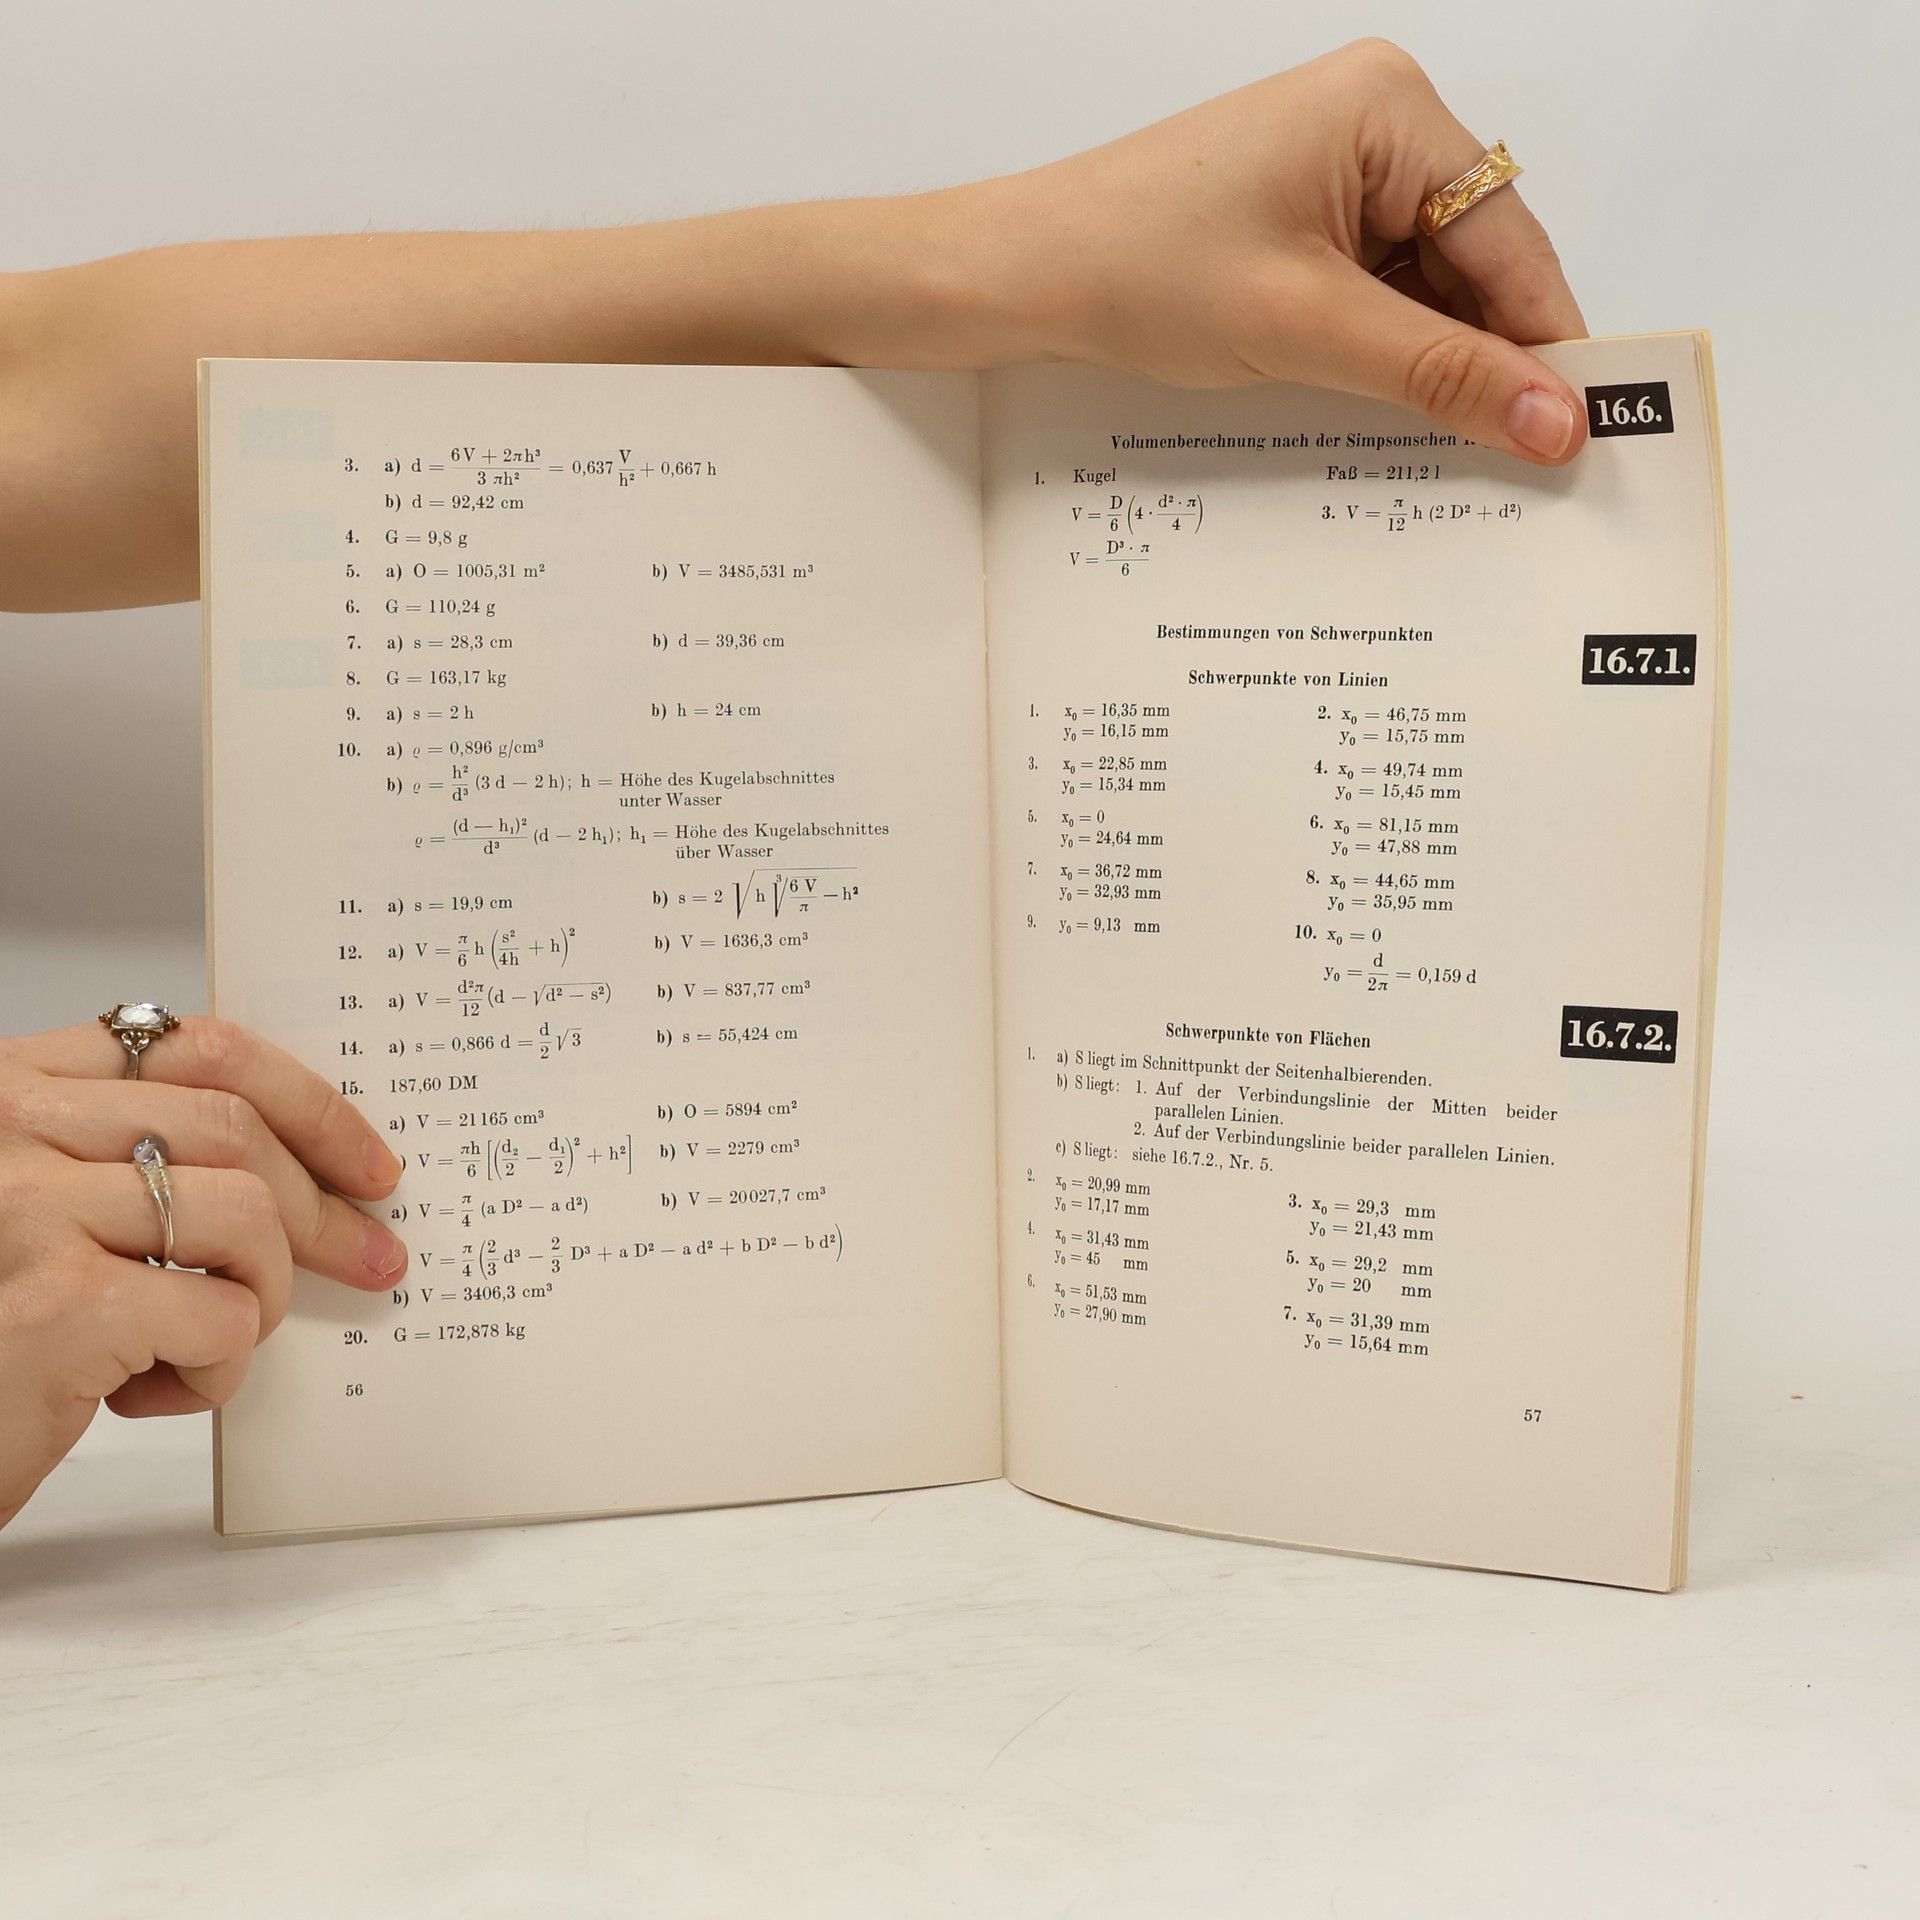 3. a) d = (6V + 2πh³)/(3 πh²) = 0,637 V/h² + 0,667 h
b) d = 92,42 cm
4. G = 9,8 g
5. a) O = 1005,31 m² b) V = 3485,531 m³
6. G = 110,24 g
7. a) s = 28,3 cm b) d = 39,36 cm
8. G = 163,17 kg
9. a) s = 2 h b) h = 24 cm
10. a) ϱ = 0,896 g/cm³
b) ϱ = h²/d³ (3 d — 2 h); h = Höhe des Kugelabschnittes
unter Wasser
ϱ = (d — h₁)²/d³ (d — 2 h₁); h₁ = Höhe des Kugelabschnittes
über Wasser
11. a) s = 19,9 cm b) s = 2 √(h ∛(6 V/π) — h²)
12. a) V = π/6 h (s²/4h + h)² b) V = 1636,3 cm³
13. a) V = d²π/12 (d — √(d² — s²)) b) V = 837,77 cm³
14. a) s = 0,866 d = d/2 √3 b) s = 55,424 cm
15. 187,60 DM
a) V = 21165 cm³ b) O = 5894 cm²
) V = πh/6 [(d₂/2 — d₁/2)² + h²] b) V = 2279 cm³
a) V = π/4 (a D² — a d²) b) V = 20027,7 cm³
V = π/4 (2/3 d³ — 2/3 D³ + a D² — a d² + b D² — b d²)
b) V = 3406,3 cm³
20. G = 172,878 kg
56
16.6.
Volumenberechnung nach der Simpsonschen
1. Kugel Faß = 211,2 l
V = D/6 (4 · d² · π/4) 3. V = π/12 h (2 D² + d²)
V = D³ · π/6
Bestimmungen von Schwerpunkten
16.7.1.
Schwerpunkte von Linien
1. x₀ = 16,35 mm 2. x₀ = 46,75 mm
y₀ = 16,15 mm y₀ = 15,75 mm
3. x₀ = 22,85 mm 4. x₀ = 49,74 mm
y₀ = 15,34 mm y₀ = 15,45 mm
5. x₀ = 0 6. x₀ = 81,15 mm
y₀ = 24,64 mm y₀ = 47,88 mm
7. x₀ = 36,72 mm 8. x₀ = 44,65 mm
y₀ = 32,93 mm y₀ = 35,95 mm
9. y₀ = 9,13 mm 10. x₀ = 0
y₀ = d/2π = 0,159 d
16.7.2.
Schwerpunkte von Flächen
1. a) S liegt im Schnittpunkt der Seitenhalbierenden.
b) S liegt: 1. Auf der Verbindungslinie der Mitten beider
parallelen Linien.
2. Auf der Verbindungslinie beider parallelen Linien.
c) S liegt: siehe 16.7.2., Nr. 5.
2. x₀ = 20,99 mm 3. x₀ = 29,3 mm
y₀ = 17,17 mm y₀ = 21,43 mm
4. x₀ = 31,43 mm 5. x₀ = 29,2 mm
y₀ = 45 mm y₀ = 20 mm
6. x₀ = 51,53 mm 7. x₀ = 31,39 mm
y₀ = 27,90 mm y₀ = 15,64 mm
57